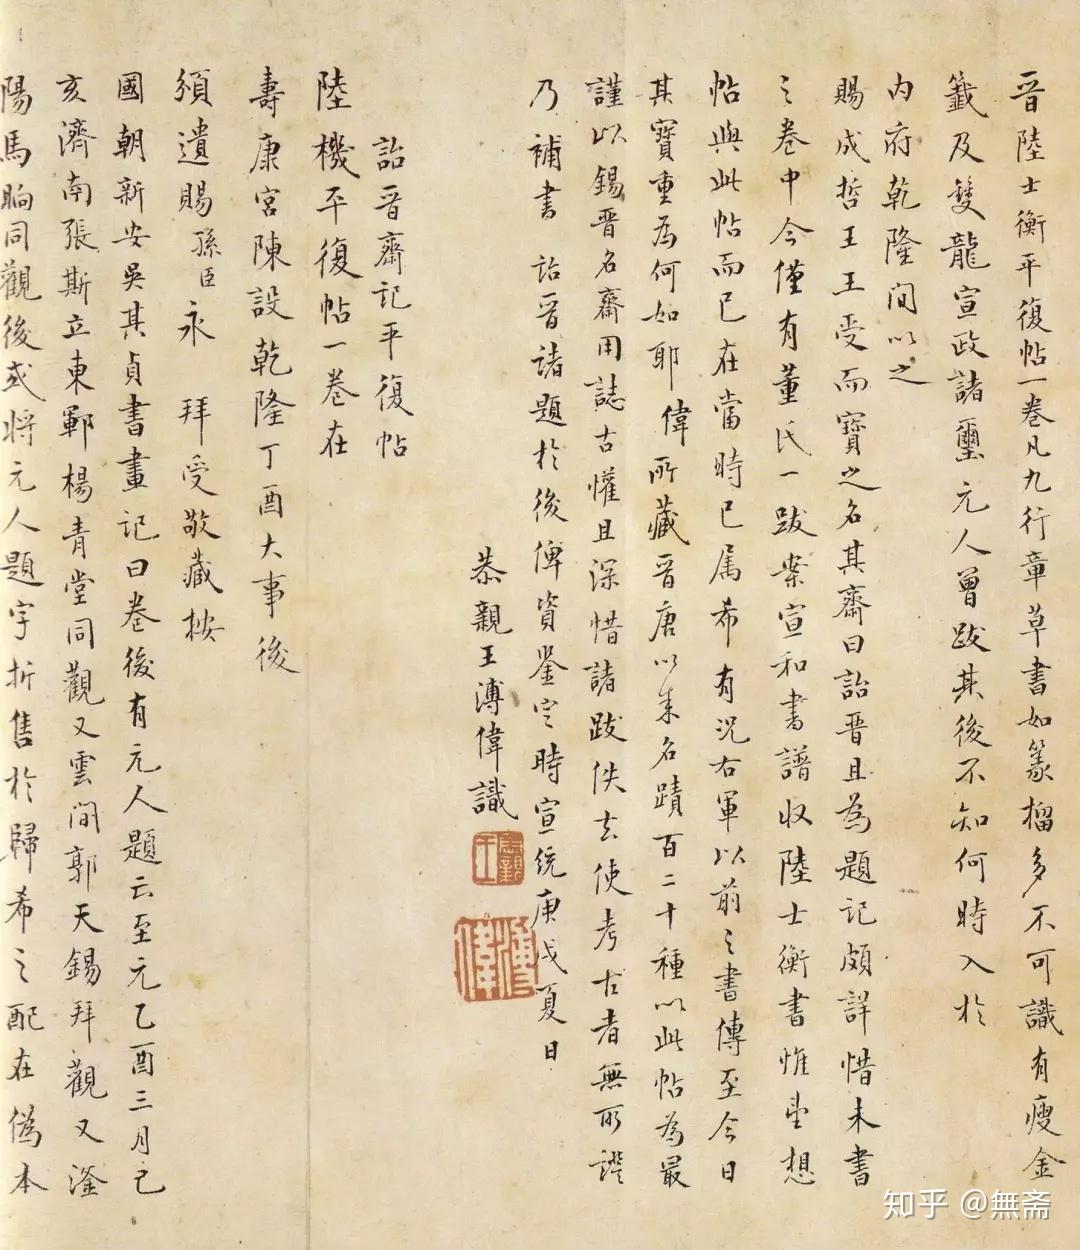 晉陸士衡平復帖一卷凡九行章草書如篆榴多不可識有瘦金
籤及雙龍宣政諸璽元人曾跋其後不知何時入於
內府乾隆間以之
賜成哲王王受而寶之名其齋曰詒晉且為題記頗詳惜未書
之卷中今僅有董氏一跋案宣和書譜收陸士衡書惟望想
帖與此帖而已在當時已屬希有況右軍以前之書傳至今日
其寶重為何如耶偉所藏晉唐以來名蹟百二十種以此帖為最
謹以錫晉名齋用誌古懽且深惜諸跋佚去使考古者無所證
乃補書詒晉諸題於後俾資鑒定時宣統庚戌夏日
恭親王溥偉識
溥偉
詒晉齋記平復帖
陸機平復帖一卷在
壽康宮陳設乾隆丁酉大事後
頒遺賜孫臣永 拜受敬藏按
國朝新安吳其貞書畫記曰卷後有元人題云至元乙酉三月己
亥濟南張斯立東鄆楊青堂同觀又雲間郭天錫拜觀又滏
陽馬晌同觀後或將元人題字折售於歸希之配在偽本
知乎 @無斋